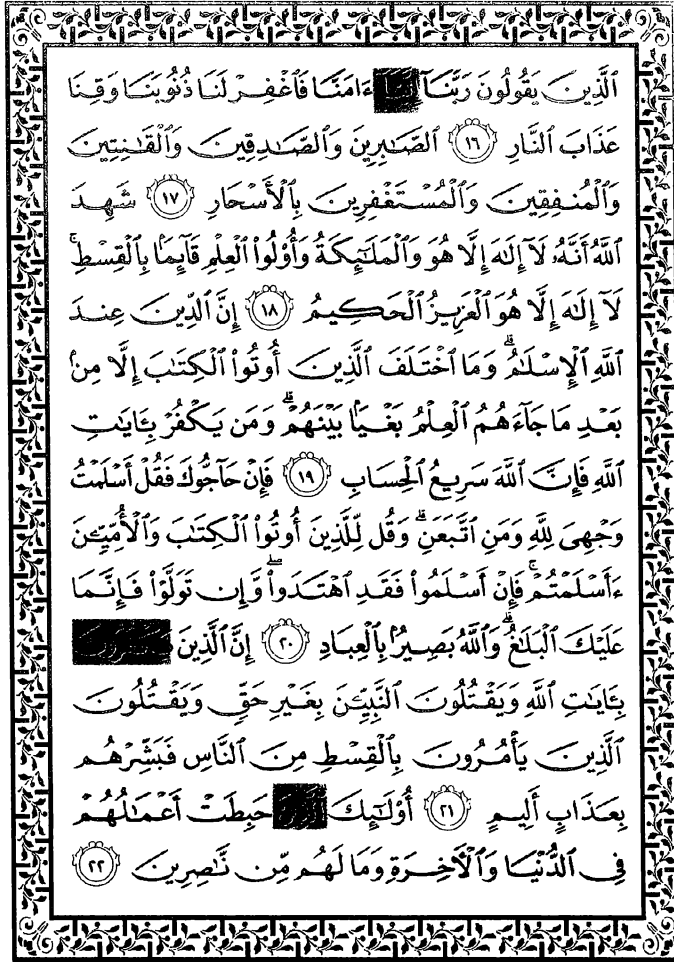 ٱلَّذِينَ يَقُولُونَ رَبَّنَآ ءَامَنَّا فَٱغْفِرْ لَنَا ذُنُوبَنَا وَقِنَا
عَذَابَ ٱلنَّارِ ١٦ ٱلصَّٰبِرِينَ وَٱلصَّٰدِقِينَ وَٱلْقَٰنِتِينَ
وَٱلْمُنفِقِينَ وَٱلْمُسْتَغْفِرِينَ بِٱلْأَسْحَارِ ١٧ شَهِدَ
ٱللَّهُ أَنَّهُۥ لَآ إِلَٰهَ إِلَّا هُوَ وَٱلْمَلَٰٓئِكَةُ وَأُو۟لُوا۟ ٱلْعِلْمِ قَآئِمًۢا بِٱلْقِسْطِ ۚ
لَآ إِلَٰهَ إِلَّا هُوَ ٱلْعَزِيزُ ٱلْحَكِيمُ ١٨ إِنَّ ٱلدِّينَ عِندَ
ٱللَّهِ ٱلْإِسْلَٰمُ ۗ وَمَا ٱخْتَلَفَ ٱلَّذِينَ أُوتُوا۟ ٱلْكِتَٰبَ إِلَّا مِنۢ
بَعْدِ مَا جَآءَهُمُ ٱلْعِلْمُ بَغْيًۢا بَيْنَهُمْ ۗ وَمَن يَكْفُرْ بِـَٔايَٰتِ
ٱللَّهِ فَإِنَّ ٱللَّهَ سَرِيعُ ٱلْحِسَابِ ١٩ فَإِنْ حَآجُّوكَ فَقُلْ أَسْلَمْتُ
وَجْهِىَ لِلَّهِ وَمَنِ ٱتَّبَعَنِ ۗ وَقُل لِّلَّذِينَ أُوتُوا۟ ٱلْكِتَٰبَ وَٱلْأُمِّيِّـۧنَ
ءَأَسْلَمْتُمْ ۚ فَإِنْ أَسْلَمُوا۟ فَقَدِ ٱهْتَدَوا۟ ۖ وَّإِن تَوَلَّوْا۟ فَإِنَّمَا
عَلَيْكَ ٱلْبَلَٰغُ ۗ وَٱللَّهُ بَصِيرٌۢ بِٱلْعِبَادِ ٢٠ إِنَّ ٱلَّذِينَ
بِـَٔايَٰتِ ٱللَّهِ وَيَقْتُلُونَ ٱلنَّبِيِّـۧنَ بِغَيْرِ حَقٍّ وَيَقْتُلُونَ
ٱلَّذِينَ يَأْمُرُونَ بِٱلْقِسْطِ مِنَ ٱلنَّاسِ فَبَشِّرْهُم
بِعَذَابٍ أَلِيمٍ ٢١ أُو۟لَٰٓئِكَ حَبِطَتْ أَعْمَٰلُهُمْ
فِى ٱلدُّنْيَا وَٱلْـَٔاخِرَةِ وَمَا لَهُم مِّن نَّٰصِرِينَ ٢٢